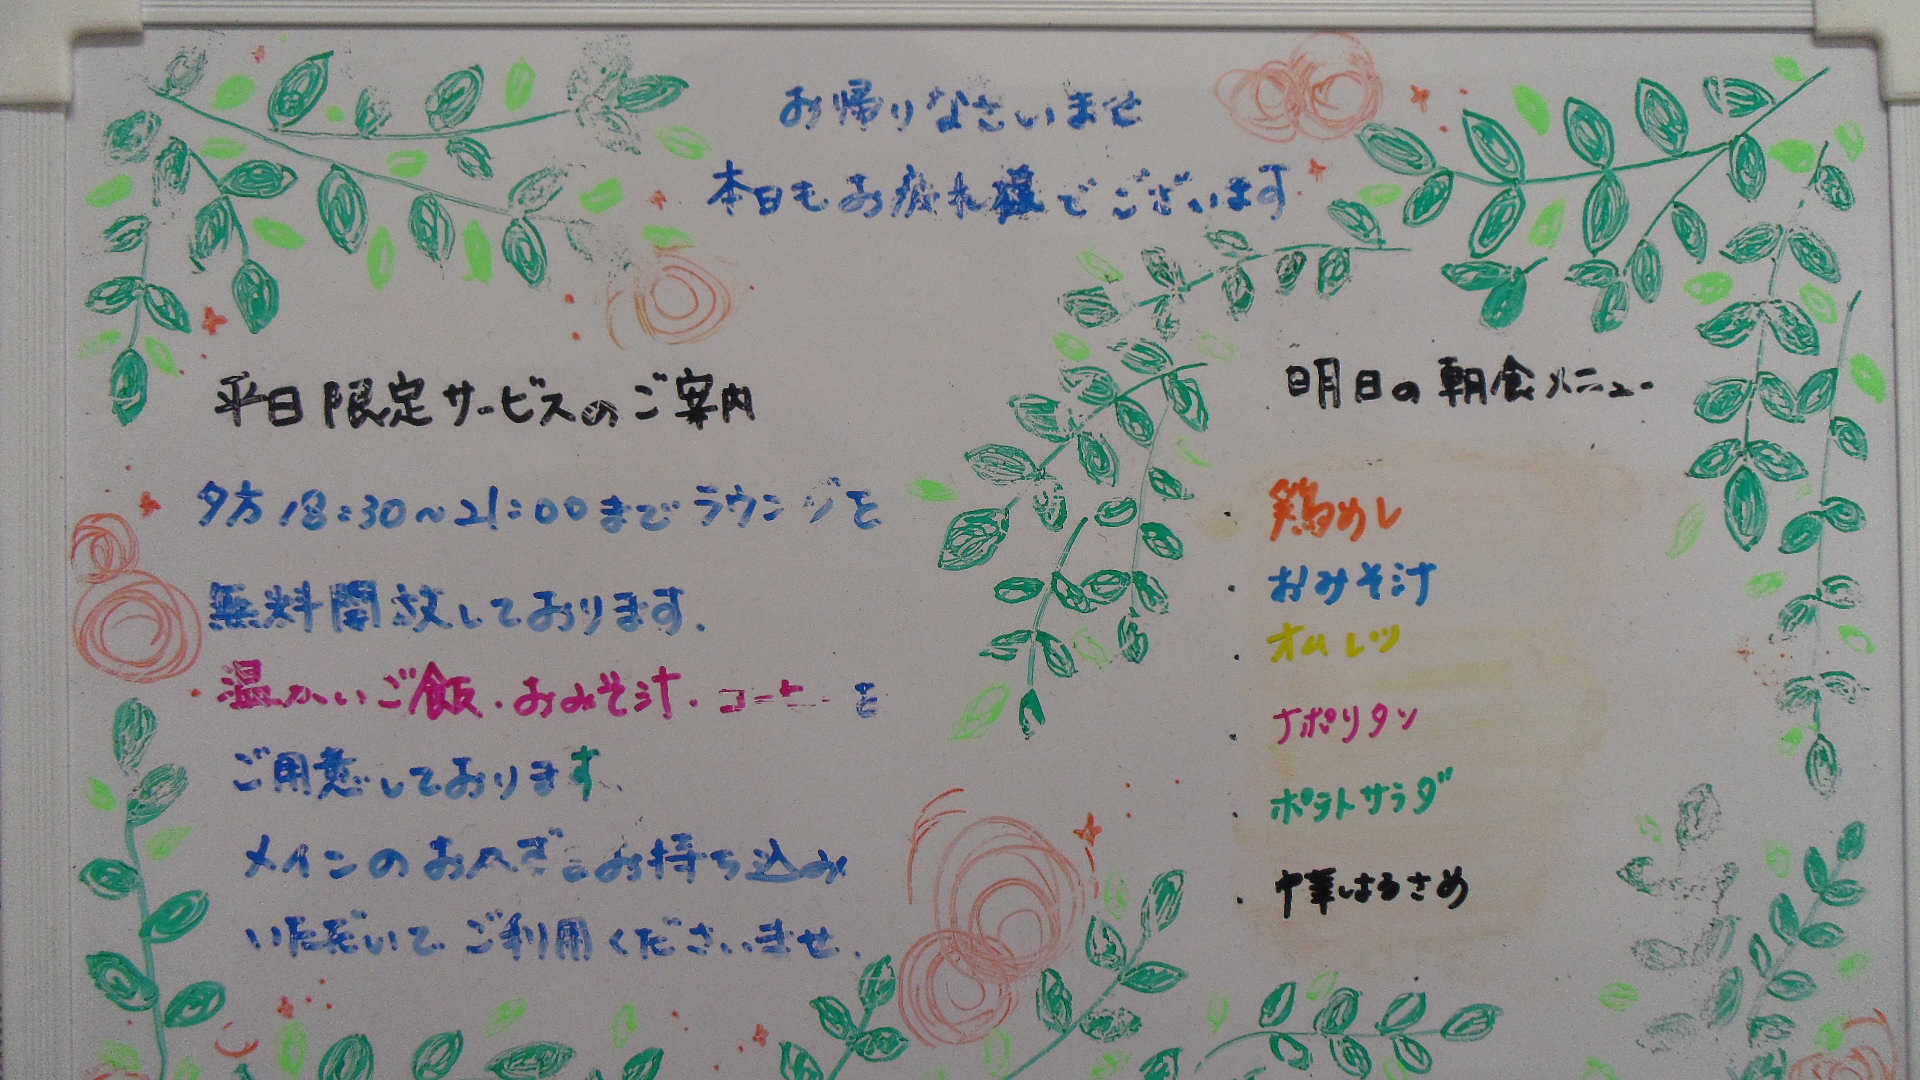 お帰りなさいませ
本日もお疲れ様でございます
平日限定サービスのご案内
夕方18:30〜21:00までラウンジを
無料開放しております.
温かいご飯・おみそ汁・コーヒーを
ご用意しております、
メインのおかずはお持ち込み
いただいてご利用くださいませ.
明日の朝食メニュー
・鶏めし
・おみそ汁
・オムレツ
・ナポリタン
・ポテトサラダ
・中華はるさめ